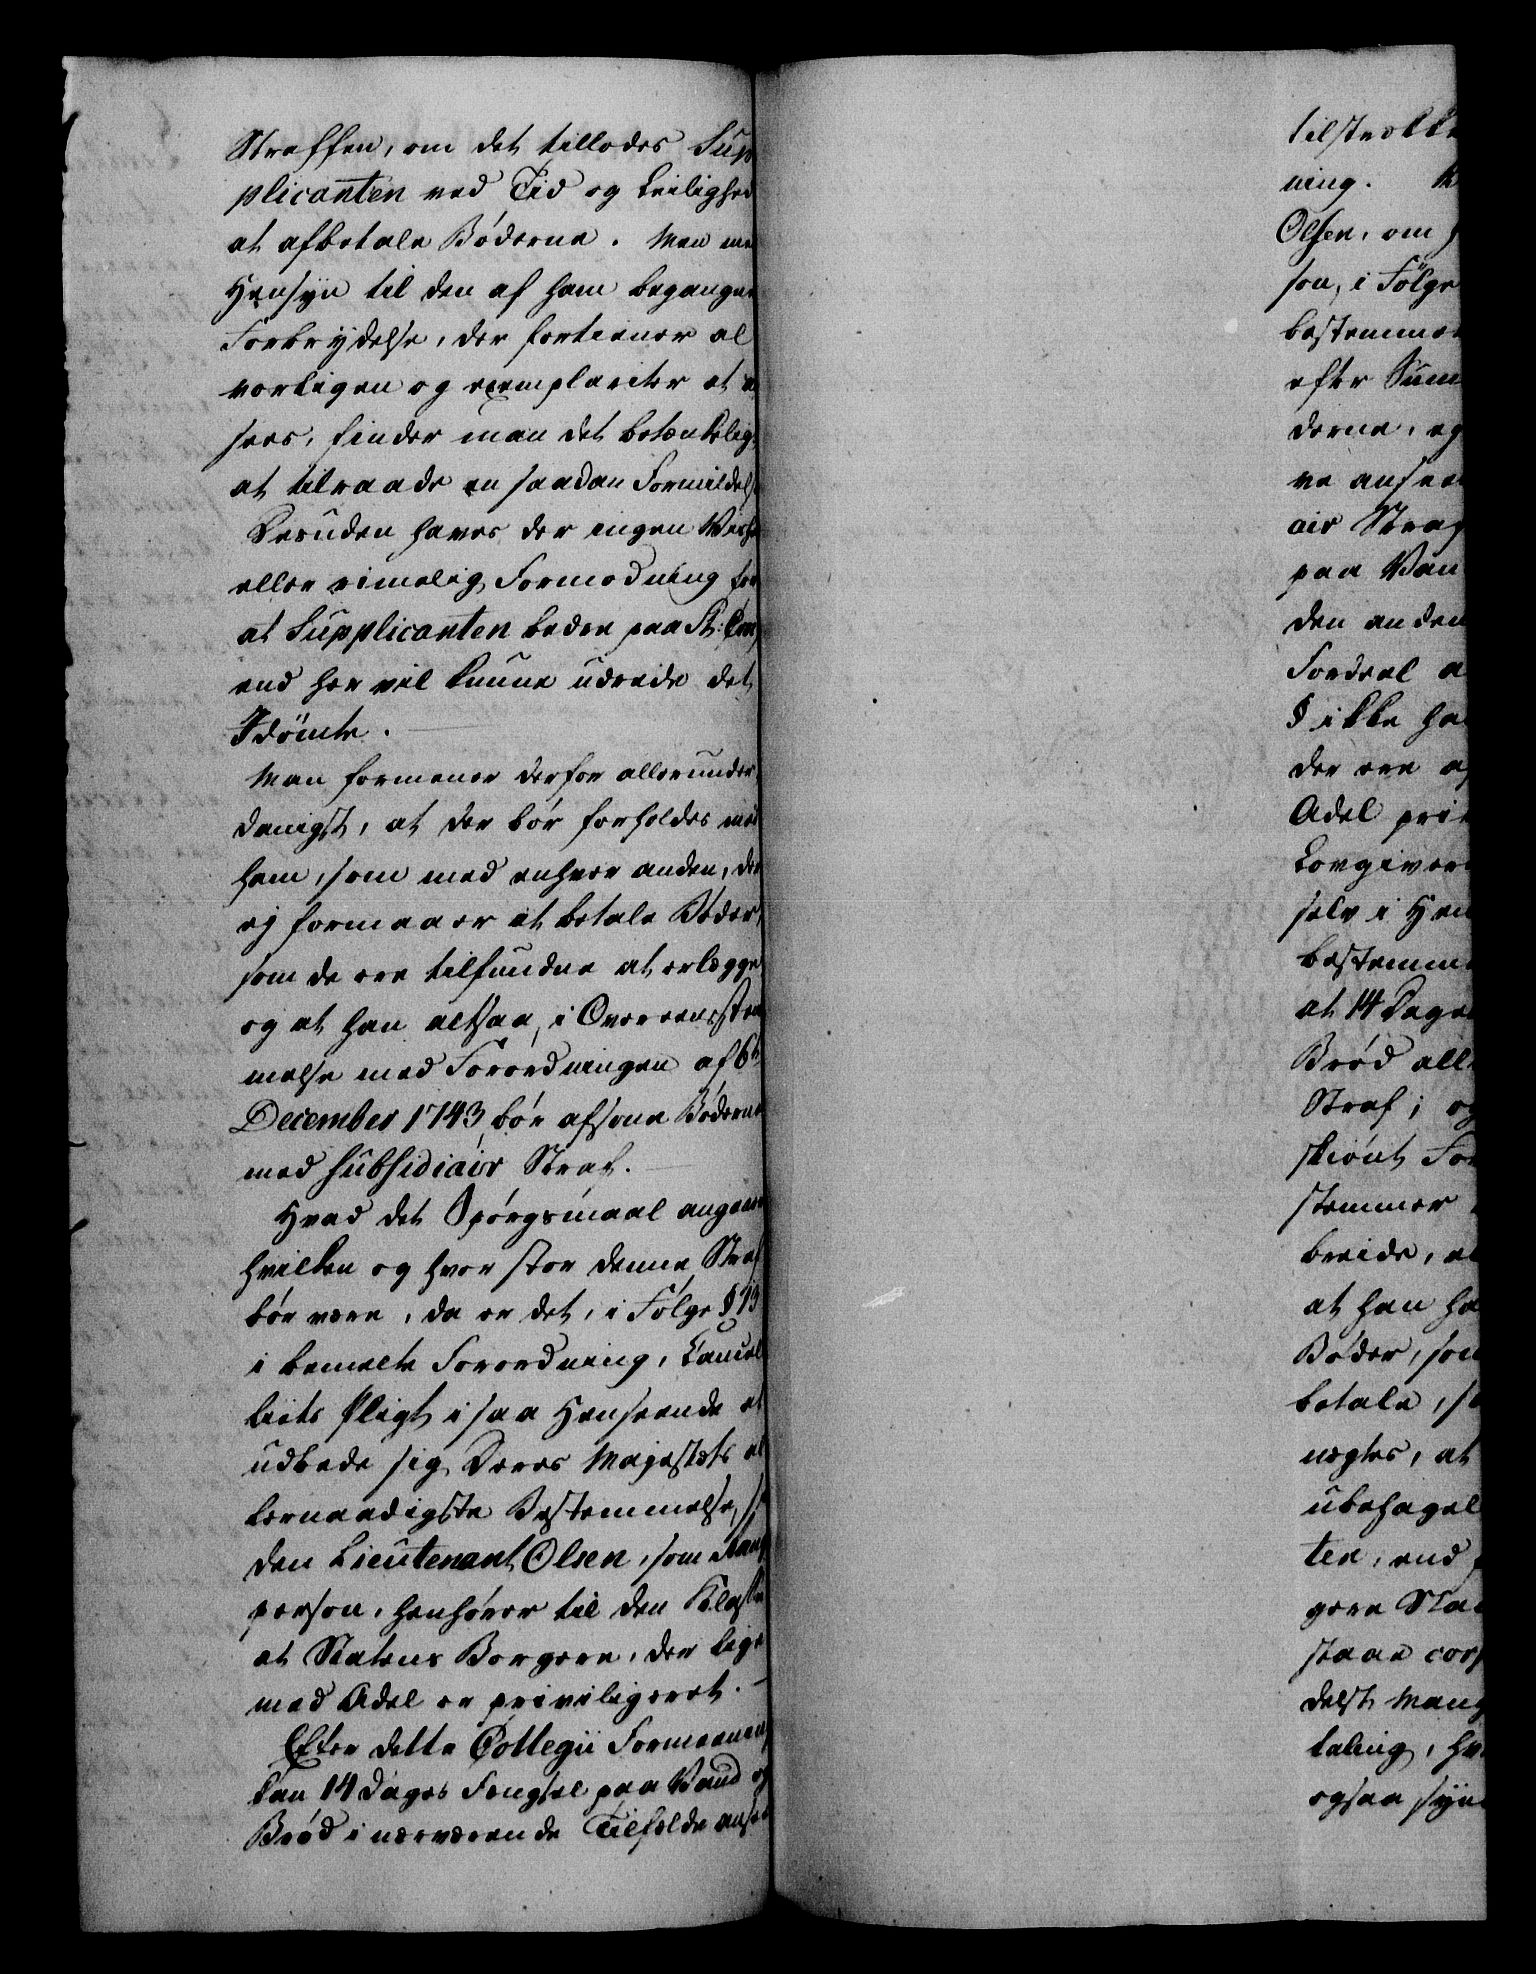 Straffen, om det tillodes Sup
plicanten ved Tid og Leilighed
at afbetale Bøderne. Men med
Hensyn til den af ham begangne
Forbrydelse, der fortiener al
vorligen og exemplariter at an
sees, finder man det betænkeligt
at tilraade en saadan Formildelse
Desuden haves der ingen Vished
eller rimelig Formodning for
at Supplicanten bedre paa St: Croix
end her vil kunne udrede det
Idømte.
Man formener derfor allerunder
danigst, at der bør forholdes med
ham, som med enhver anden, der
ej formaaer at betale Bøder,
som de ere tilfundne at erlægge
og at han altsaa, i Overeensstem
melse med Forordningen af 6te
December 1743 bør afsone Bøderne
med subsidiair Straf.
Hvad det Spørgsmaal angaaer
hvilken og hvor stor denne Straf
bør være, da er det, i Følge § 19
i bemelte Forordning, Cancel
liets Pligt i saa Henseende at
udbede sig Deres Majestæts al
lernaadigste Bestemmelse,
den Lieutenant Olsen, som Rang
person, henhører til den Klasse
at Statens Borgere, der lige
med Adel er priviligeret.
Efter dette Collegii Formeening
kan 14 Dages Fængsel paa Vand og
Brød i nærværende Tilfælde ansees
tilstrække
ning.
Olsen, om
son, i Følge
bestemme
efter Sum
derne, og
ve ansee
air Straf
paa Van
den anden
Fordeel a
§ ikke ha
der ere a
Adel priv
Lovgiver
selv i Hen
bestemme
at 14 Dage
Brød all
Straf; og
skiønt For
stemmer
beide, e
at han ha
Bøder, som
betale, s
nægtes, at
ubehagel
ten, end
gere Sta
staae corp
delst Mang
taling, hv
ogsaa syn